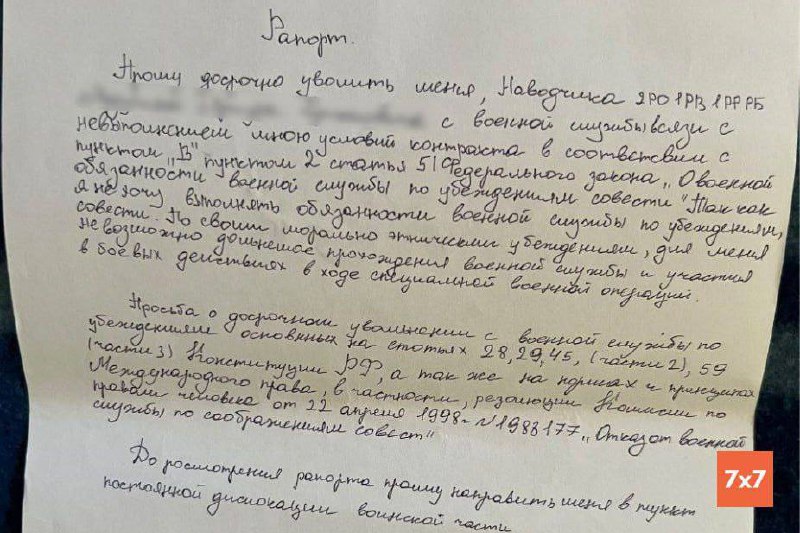 Рапорт.
Прошу досрочно уволить меня, Наводчика 2РО 1РВ 1РРРБ
с военной службы всязи с
невыполнением мною условий контракта в соответсвии с
пунктом "В" пунктом 2 статья 51 Федерального закона „О военной
обязанности военной службы по убеждениям совести" Так как
я не хочу выполнять обязанности военной службы по убеждениям,
совести. По своим морально этническим убеждениям, для меня
не возможно дальнешое прохождения военной службы и участия
в боевых действиях в ходе специальной военной операции.
Просьба о досрочном увольнении с военной службы по
убеждениям основных на статьях 28, 29, 45, (части 2), 59
(части 3) Конституции РФ, а так же на нормах и принципах
Международного права, в частности, резолюции Комиссии по
правам человека от 22 апреля 1998г N 1998 177 „Отказ от военной
службы по соображениям совест"
До росмотрения рапорта прошу направить меня в пункт
постоянной дислокации воинской части
7x7